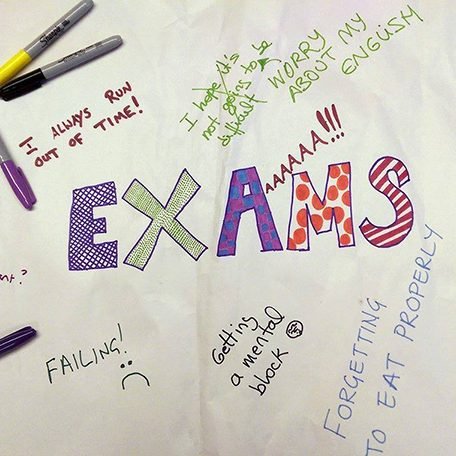 Sharpie
I hope it's
not going to be
difficult
WORRY MY
ABOUT MY
ENGLISH
I ALWAYS RUN
OUT OF TIME!
AAAAAA!!!
EXAMS
FAILING!
Getting
a mental
block
FORGETTING
TO EAT PROPERLY